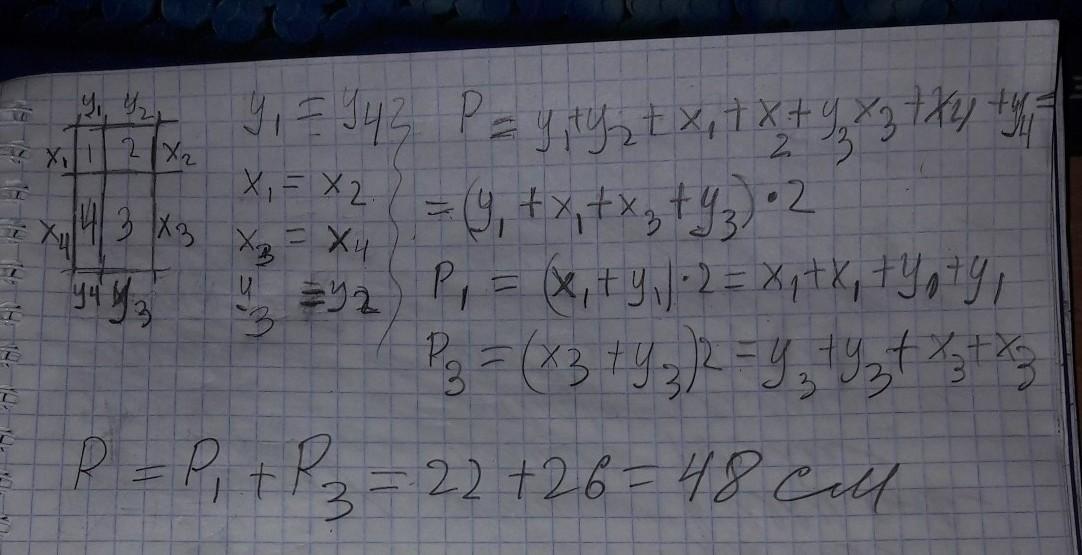 y₁ y₂
x₁ 1 2 x₂
x₄ 4 3 x₃
y₄ y₃
y₁ = y₄
x₁ = x₂
x₃ = x₄
y₃ = y₂
P = y₁+y₂ + x₁ + x₂ + y₃ x₃ + x₄ + y₄ =
= (y₁ + x₁ + x₃ + y₃) · 2
P₁ = (x₁ + y₁) · 2 = x₁ + x₁ + y₁ + y₁
P₃ = (x₃ + y₃)2 = y₃ + y₃ + x₃ + x₃
P = P₁ + P₃ = 22 + 26 = 48 см